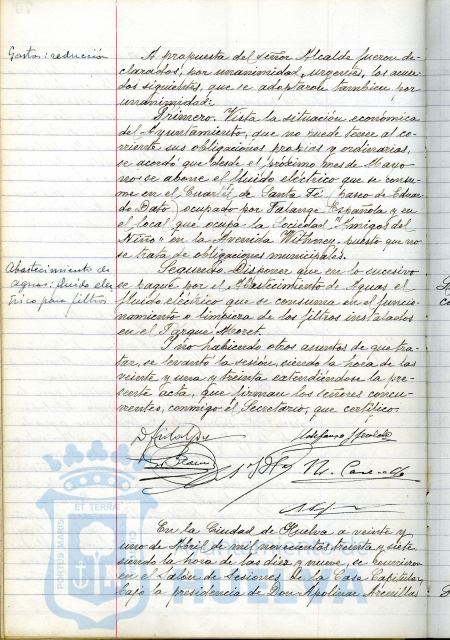 Gastos: reducción
A propuesta del señor Alcalde fueron de-
clarados, por unanimidad, urgentes, los acuer-
dos siguientes, que se adoptaron tambien por
unanimidad:
Primero. Vista la situación económica
del Ayuntamiento, que no puede tener al co-
rriente sus obligaciones propias y ordinarias,
se acordó que desde el próximo mes de Mayo
no se abone el fluido eléctrico que se consu-
me en el Cuartel de Santa Fé (paseo de Eduar
do Dato) ocupado por Falange Española y en
el local que ocupa la Sociedad "Amigos del
Niño" en la Avenida Withoney, puesto que no
se trata de obligaciones municipales.
Abastecimiento de
aguas: fluido eléc
trico para filtros
Segundo. Disponer que en lo sucesivo
se pague por el Abastecimiento de Aguas el
fluido eléctrico que se consuma en el funcio-
namiento o limpieza de los filtros instalados
en el Parque Moret.
Y no habiendo otros asuntos de que tra-
tar, se levantó la sesión, siendo la hora de las
veinte y una y treinta extendiéndose la pre-
sente acta, que firman los señores concu-
rrentes, conmigo el Secretario, que certifico.
En la Ciudad de Huelva a veinte y
uno de Abril de mil novecientos treinta y siete
siendo la hora de las diez y nueve, se reunieron
en el Salón de Sesiones de la Casa Capitular,
bajo la presidencia de Don Apolinar Arenillas
PORTUS MARIS
ET TERRAE
HUELVA